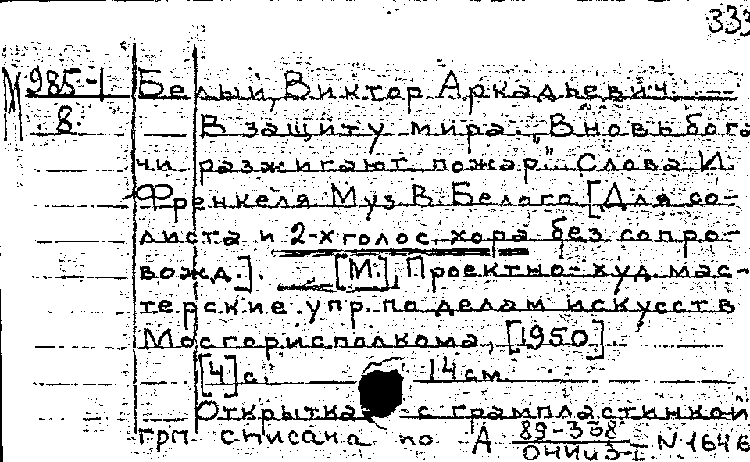 333
М 985-1 Белый, Виктор Аркадьевич. —
8. В защиту мира. "Вновь бога-
чи разжигают пожар". Слова И.
Френкеля Муз. В. Белого [Для со-
листа и 2-х голос. хора без сопро-
вожд.]. [М.], Проектно-худ. мас-
терские упр. по делам искусств
Мосгорисполкома, [1950].
[4] с. 14 см.
Открытка с грампластинкой
грп списана по А 89-338 N 1646